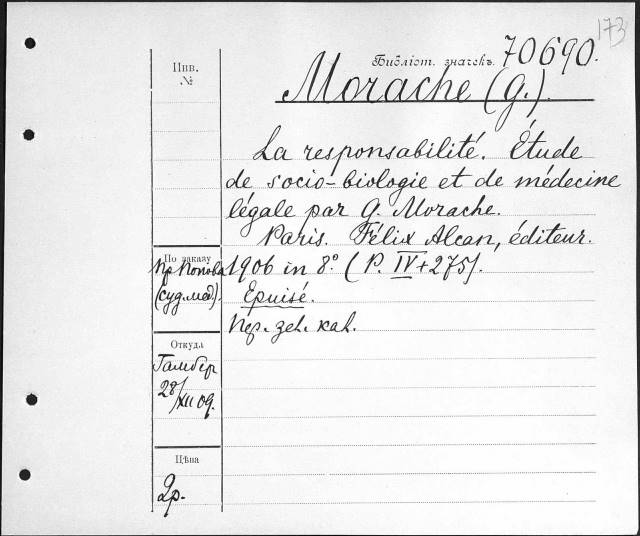 173
Инв. №
Библіот. значекъ. 70690.
Morache (G.).
La responsabilité. Étude
de socio-biologie et de médecine
légale par G. Morache.
Paris. Félix Alcan, éditeur.
1906 in 8°. (P. IV+275).
Epuisé.
По заказу
Пр. Попова
(суд. мед.).
Откуда
28/XII 09.
Цѣна
2р.